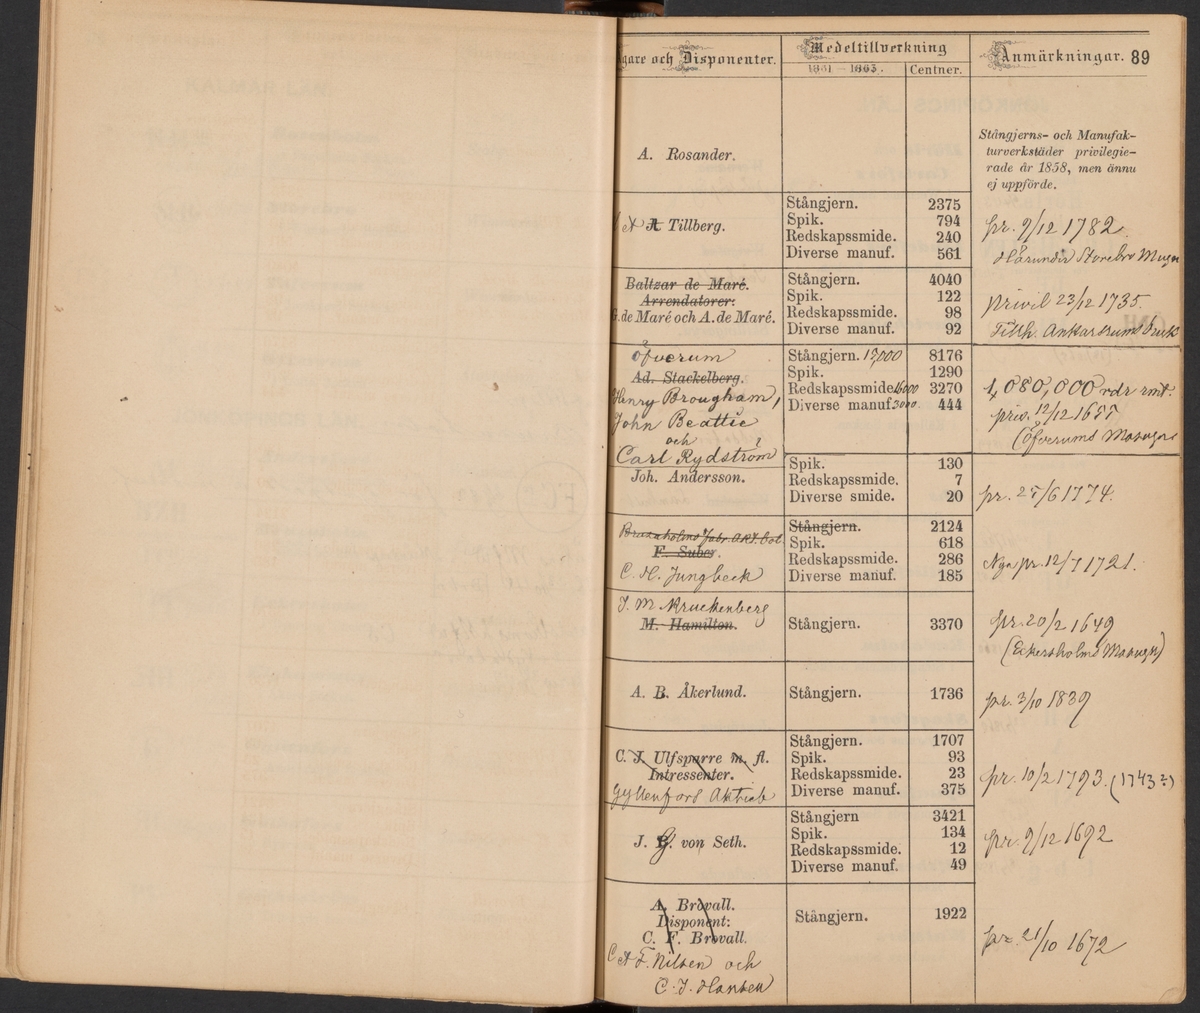 Ägare och Disponenter. Medeltillverkning Anmärkningar. 89
1861—1863. Centner.
A. Rosander.
Stångjerns- och Manufak-
turverkstäder privilegie-
rade år 1858, men ännu
ej uppförde.
A Tillberg.
Stångjern. 2375
Spik. 794
Redskapssmide. 240
Diverse manuf. 561
pr. 9/12 1782.
Härunder Storebro
Baltzar de Maré.
Arrendatorer:
G. de Maré och A. de Maré.
Stångjern. 4040
Spik. 122
Redskapssmide. 98
Diverse manuf. 92
privil 23/12 1735.
Tillh. Ankarsrums bruk
Öfverum
Ad. Stackelberg.
Henry Brougham,
John Beattie
och
Carl Rydström
Stångjern. 15,000 8176
Spik. 1290
Redskapssmide 3270
Diverse manuf. 3000 444
1,080,000 rdr rmt.
priv. 12/12 1657
(Öfverums Masugn
Joh. Andersson.
Spik. 130
Redskapssmide. 7
Diverse smide. 20
pr. 27/6 1774.
F. Suber.
C. H. Jungbeck
Stångjern. 2124
Spik. 618
Redskapssmide. 286
Diverse manuf. 185
Nya pr. 12/7 1721.
J. M. Kruckenberg
M. Hamilton.
Stångjern. 3370
pr. 20/2 1649
(Eckersholms Masugn)
A. B. Åkerlund.
Stångjern. 1736
pr. 3/10 1839
C. J. Ulfsparre m. fl.
Intressenter.
Gyllenfors Aktieb
Stångjern. 1707
Spik. 93
Redskapssmide. 23
Diverse manuf. 375
pr. 10/2 1793. (1743?)
J. G. von Seth.
Stångjern 3421
Spik. 134
Redskapssmide. 12
Diverse manuf. 49
pr. 9/12 1692
A. Brovall.
Disponent:
C. F. Brovall.
C A F. Nilsen och
C. J. Hansen
Stångjern. 1922
pr. 21/10 1672